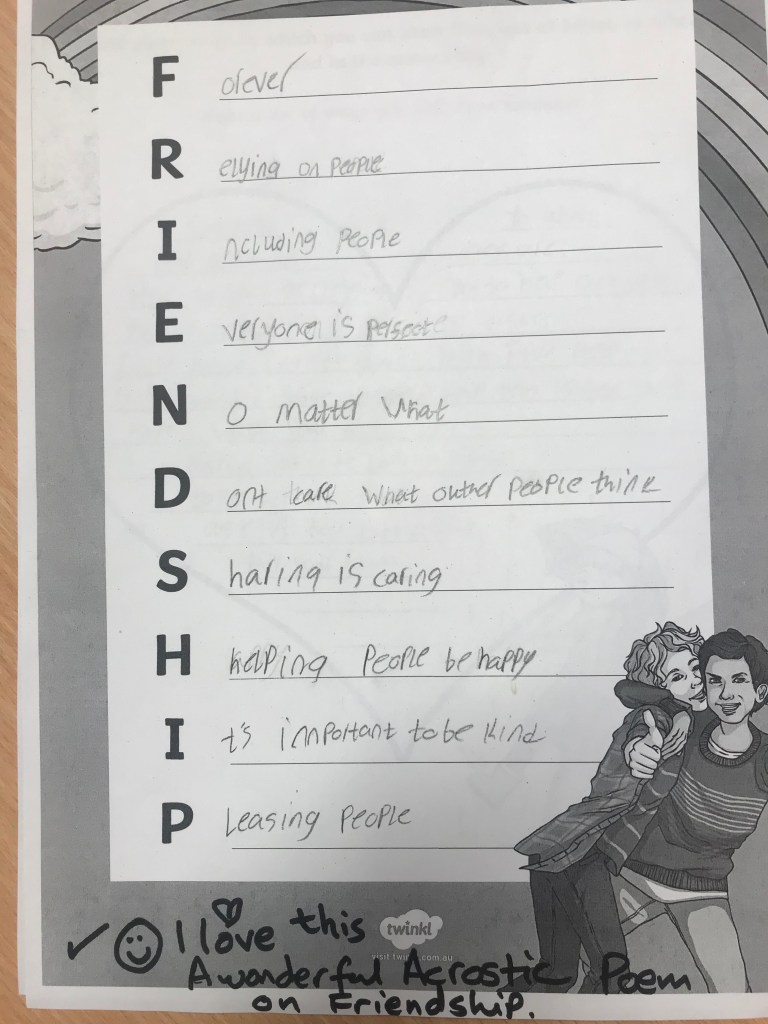 F orever
R elying on people
I ncluding people
E veryone is persecte
N o matter what
D ont care what outher people think
S haring is caring
H helping people be happy
I t's important to be kind
P Leasing people
✓ ☺ I love this
twinkl
visit twinkl.com.au
A wonderful Acrostic Poem
on Friendship.